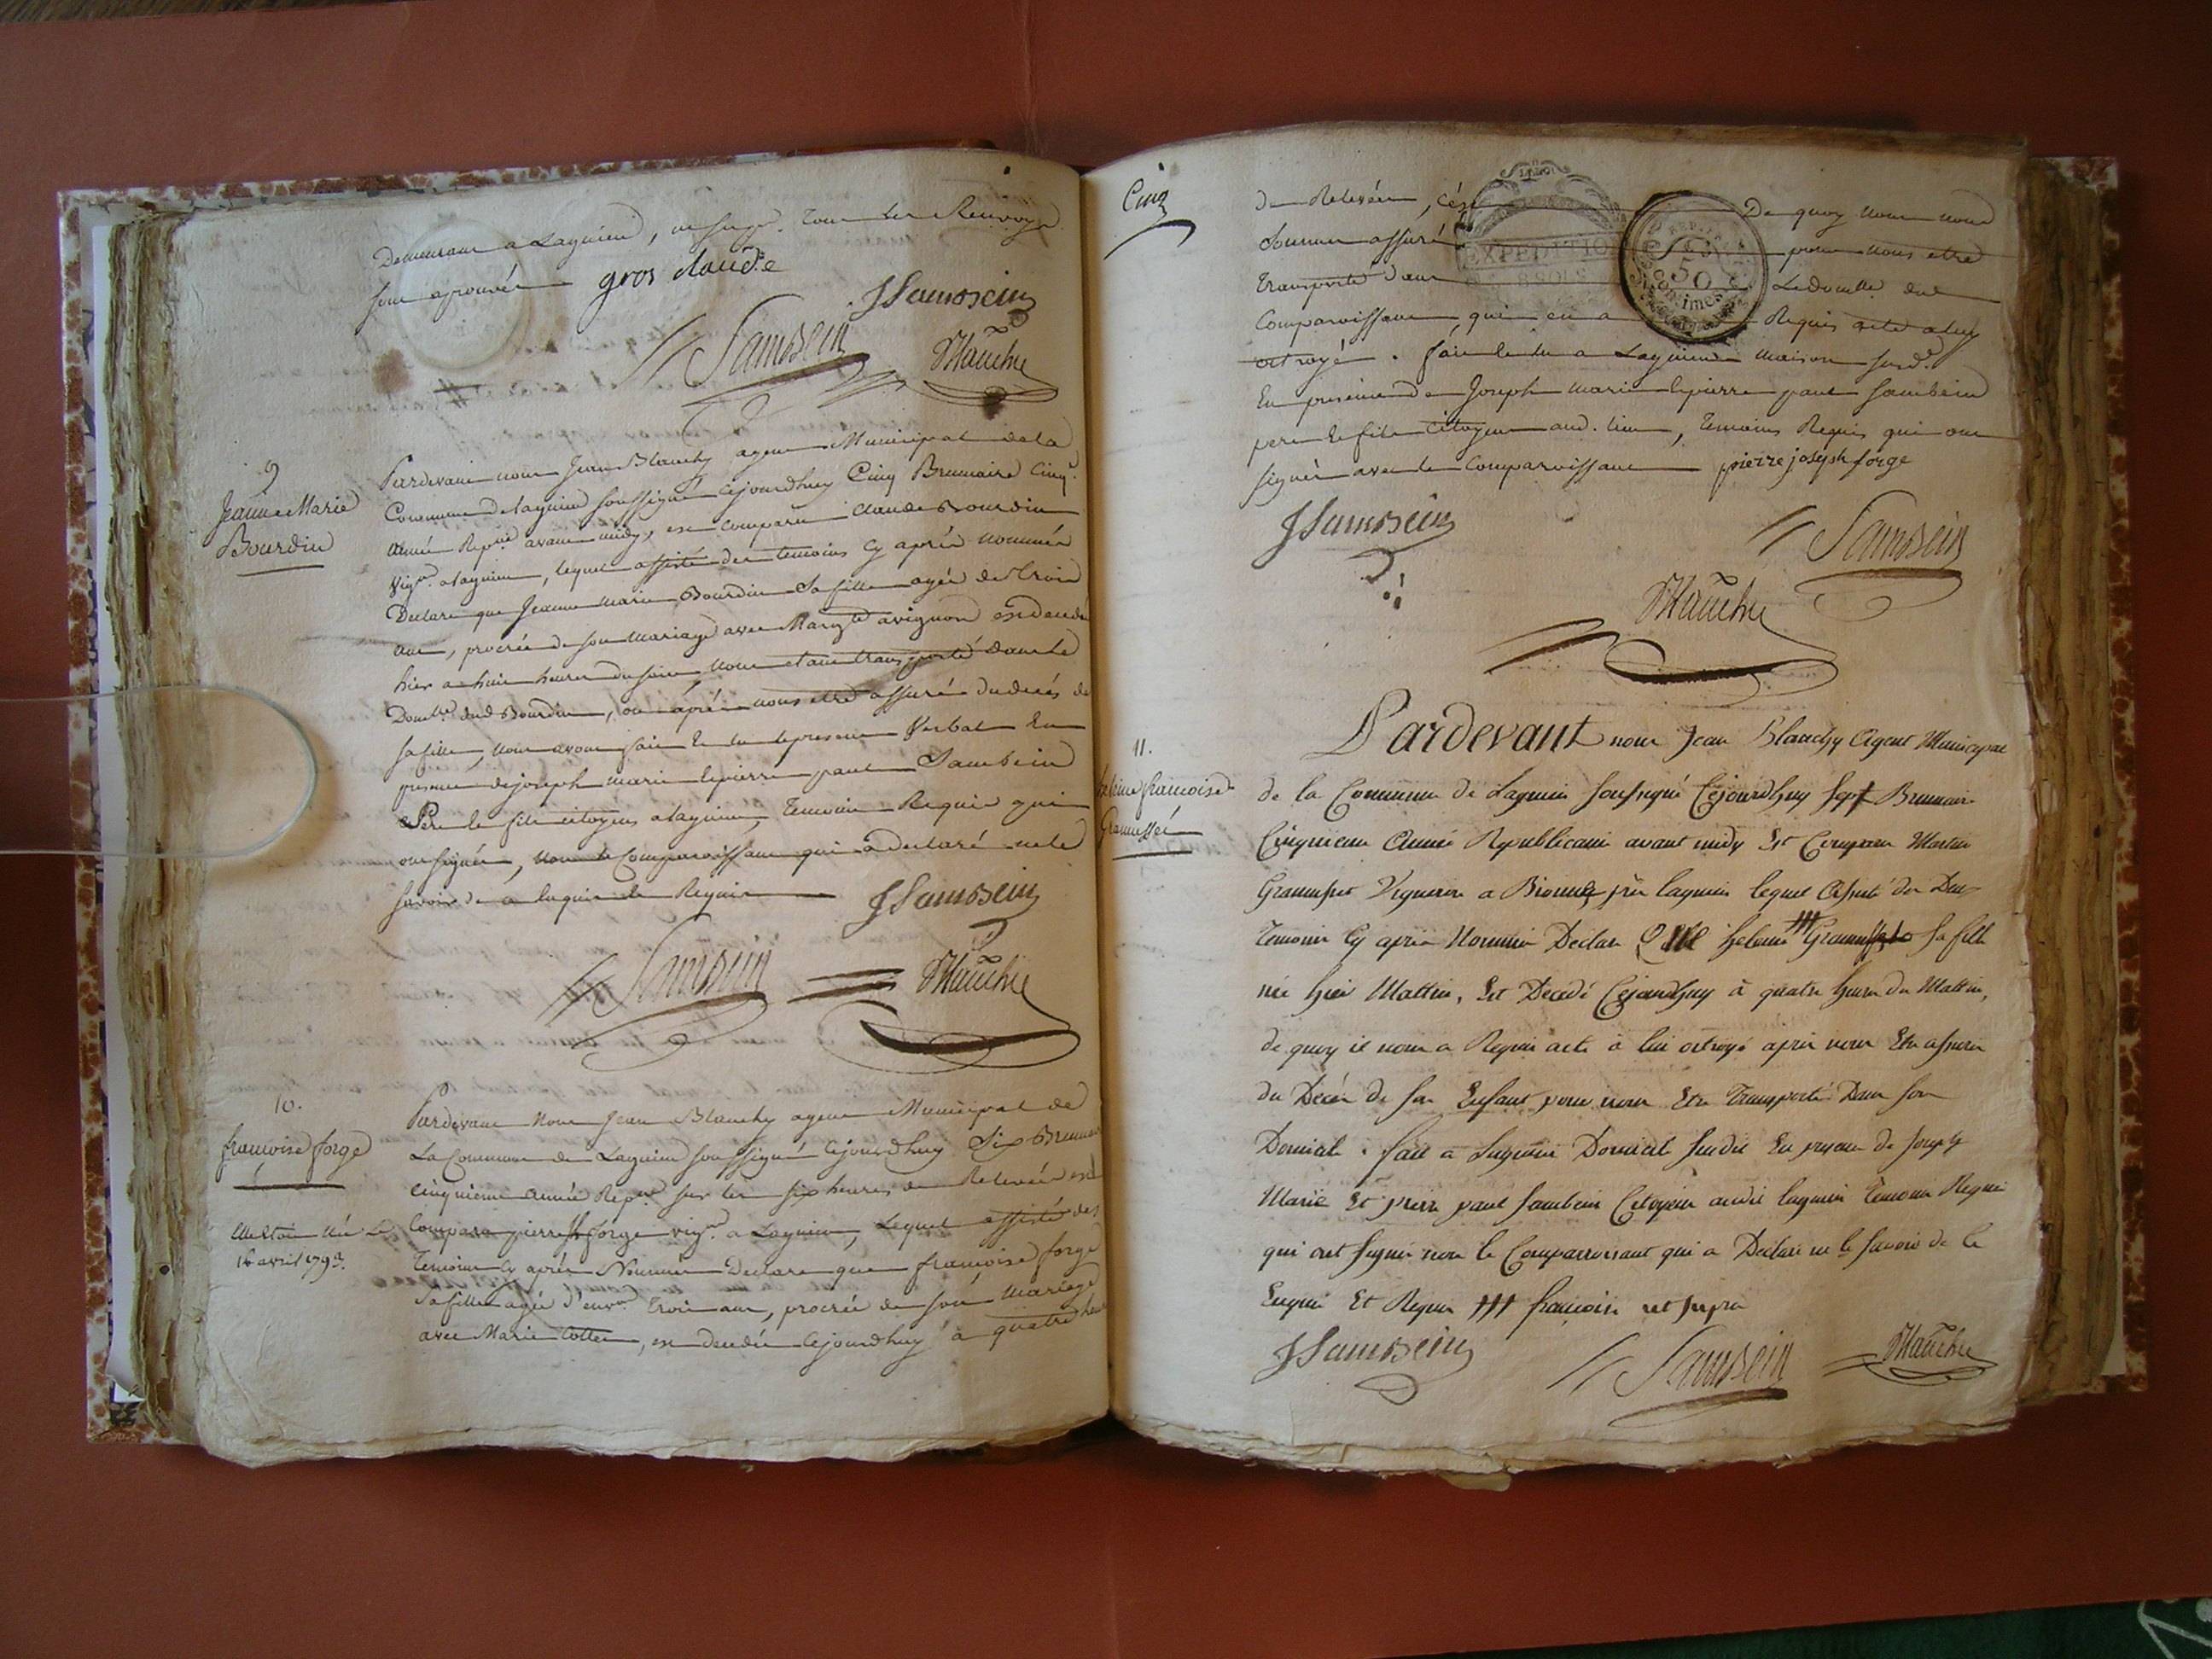 Demeurant a Lagnieu, un surpr. tous les Renvoys
sont aprouvés gros claude
JSambein
Sambein Blanchy
9
Jeanne Marie
Bourdin
Pardevant nous Jean Blanchy agent Municipal de la
Commune de lagnieu soussigné cejourdhuy Cinq Brumaire Cinq.e
année Rep.ne avant midy, est comparu Claude Bourdin
vig.on a lagnieu, lequel assisté des temoins cy après nommés
Declare que Jeanne marie Bourdin Sa fille agée de trois
ans, procréé de son mariage avec Marg.te avignon est decedé
hier a huit heures du soir, nous etant transporté dans le
Domi.le dud Bourdin, ou après nous etre assuré du decés de
sa fille, nous avons fait et lu le present Verbal En
presence de joseph marie et pierre paul Sambein
Pere et fils citoyens a lagnieu, temoins Requis qui
ont signés, non le Comparoissant qui a declaré ne le
savoir de ce enquis et Requis JSambein
Sambein Blanchy
10.
françoise forge
elle était née le
16 avril 1793.
Pardevant Nous Jean Blanchy agent Municipal de
La Commune de Lagnieu soussigné Cejourdhuy Six Brumaire
cinquieme année Rep.ne sur les six heures de Relevée est
Comparu pierre forge vig.on a Lagnieu, Lequel assisté des
temoins cy après Nommés Declare que françoise forge
Sa fille agée d'env.on trois ans, procréé de son mariage
avec Marie Cottin, est decedée Cejourdhuy a quatre heures
Cinq
de Relevée, De quoy nous nous
sommes assuré pour nous etre
transporté dans Le domi.le dud
Comparoissant, qui en a Requis acte a luy
octroyé. fait et lu a Lagnieu maison susd.e
En presence de Joseph marie et pierre paul Sambein
pere et fils Citoyens aud. lieu, temoins Requis qui ont
signés avec le Comparoissant pierre joseph forge
EXPEDITION
8 SOLS
50
centimes
JSambein
Sambein
Blanchy
11.
helene francoise
Grammusset
Pardevant nous Jean Blanchy Agent Municipal
de la Commune de Lagnieu Soussigné Cejourdhuy Sept Brumaire
Cinquieme Année Republicaine avant midy Est Comparu Martin
Vigneron a près lagnieu lequel Assisté des Deux
temoins Cy après Nommés Declare Que helene Sa fille
née hier Mattin, Est Decedé Cejourdhuy à quatre heures du Mattin,
de quoy il nous a Requis acte à lui octroyé après nous Etre assurés
du Décés de son Enfant pour nous Etre Transporté Dans son
Domicile. fait a Lagnieu Domicile Susdit En presence de Joseph
Marie Et pierre paul Sambein Citoyens audit lagnieu temoins Requis
qui ont Signé non le Comparoissant qui a Declaré ne le savoir de ce
Enquis Et Requis ### francoise ut supra
JSambein Sambein Blanchy